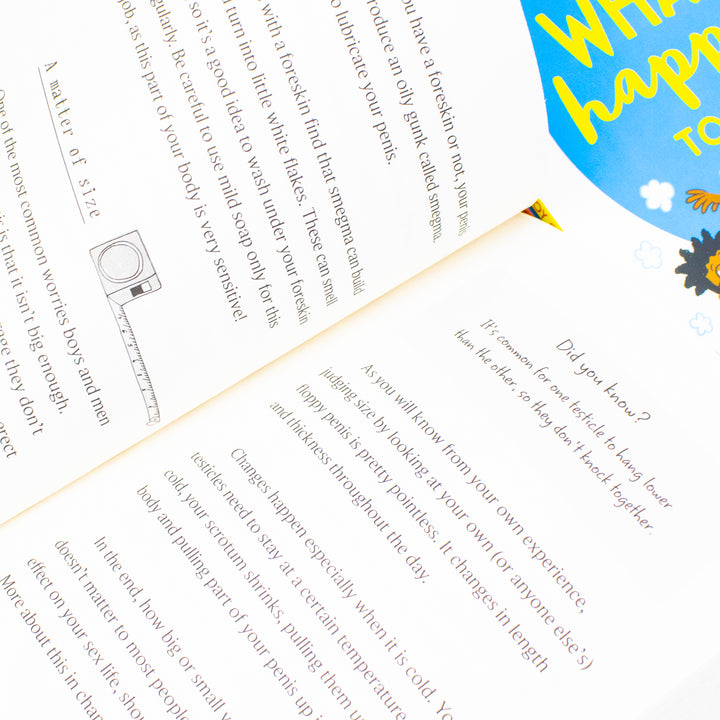 ou have a foreskin or not, your penis
oduce an oily gunk called smegma.
o lubricate your penis.
with a foreskin find that smegma can build
turn into little white flakes. These can smell
so it's a good idea to wash under your foreskin
gularly. Be careful to use mild soap only for this
job, as this part of your body is very sensitive!
A matter of size
One of the most common worries boys and men
is is that it isn't big enough.
age they don't
erect
Did you know?
It's common for one testicle to hang lower
than the other, so they don't knock together.
As you will know from your own experience,
judging size by looking at your own (or anyone else's)
floppy penis is pretty pointless. It changes in length
and thickness throughout the day.
Changes happen especially when it is cold.
testicles need to stay at a certain temperature
cold, your scrotum shrinks, pulling them u
body and pulling part of your penis up i
In the end, how big or small y
doesn't matter to most people
effect on your sex life, shou
More about this in chap
WHA
happ
TO